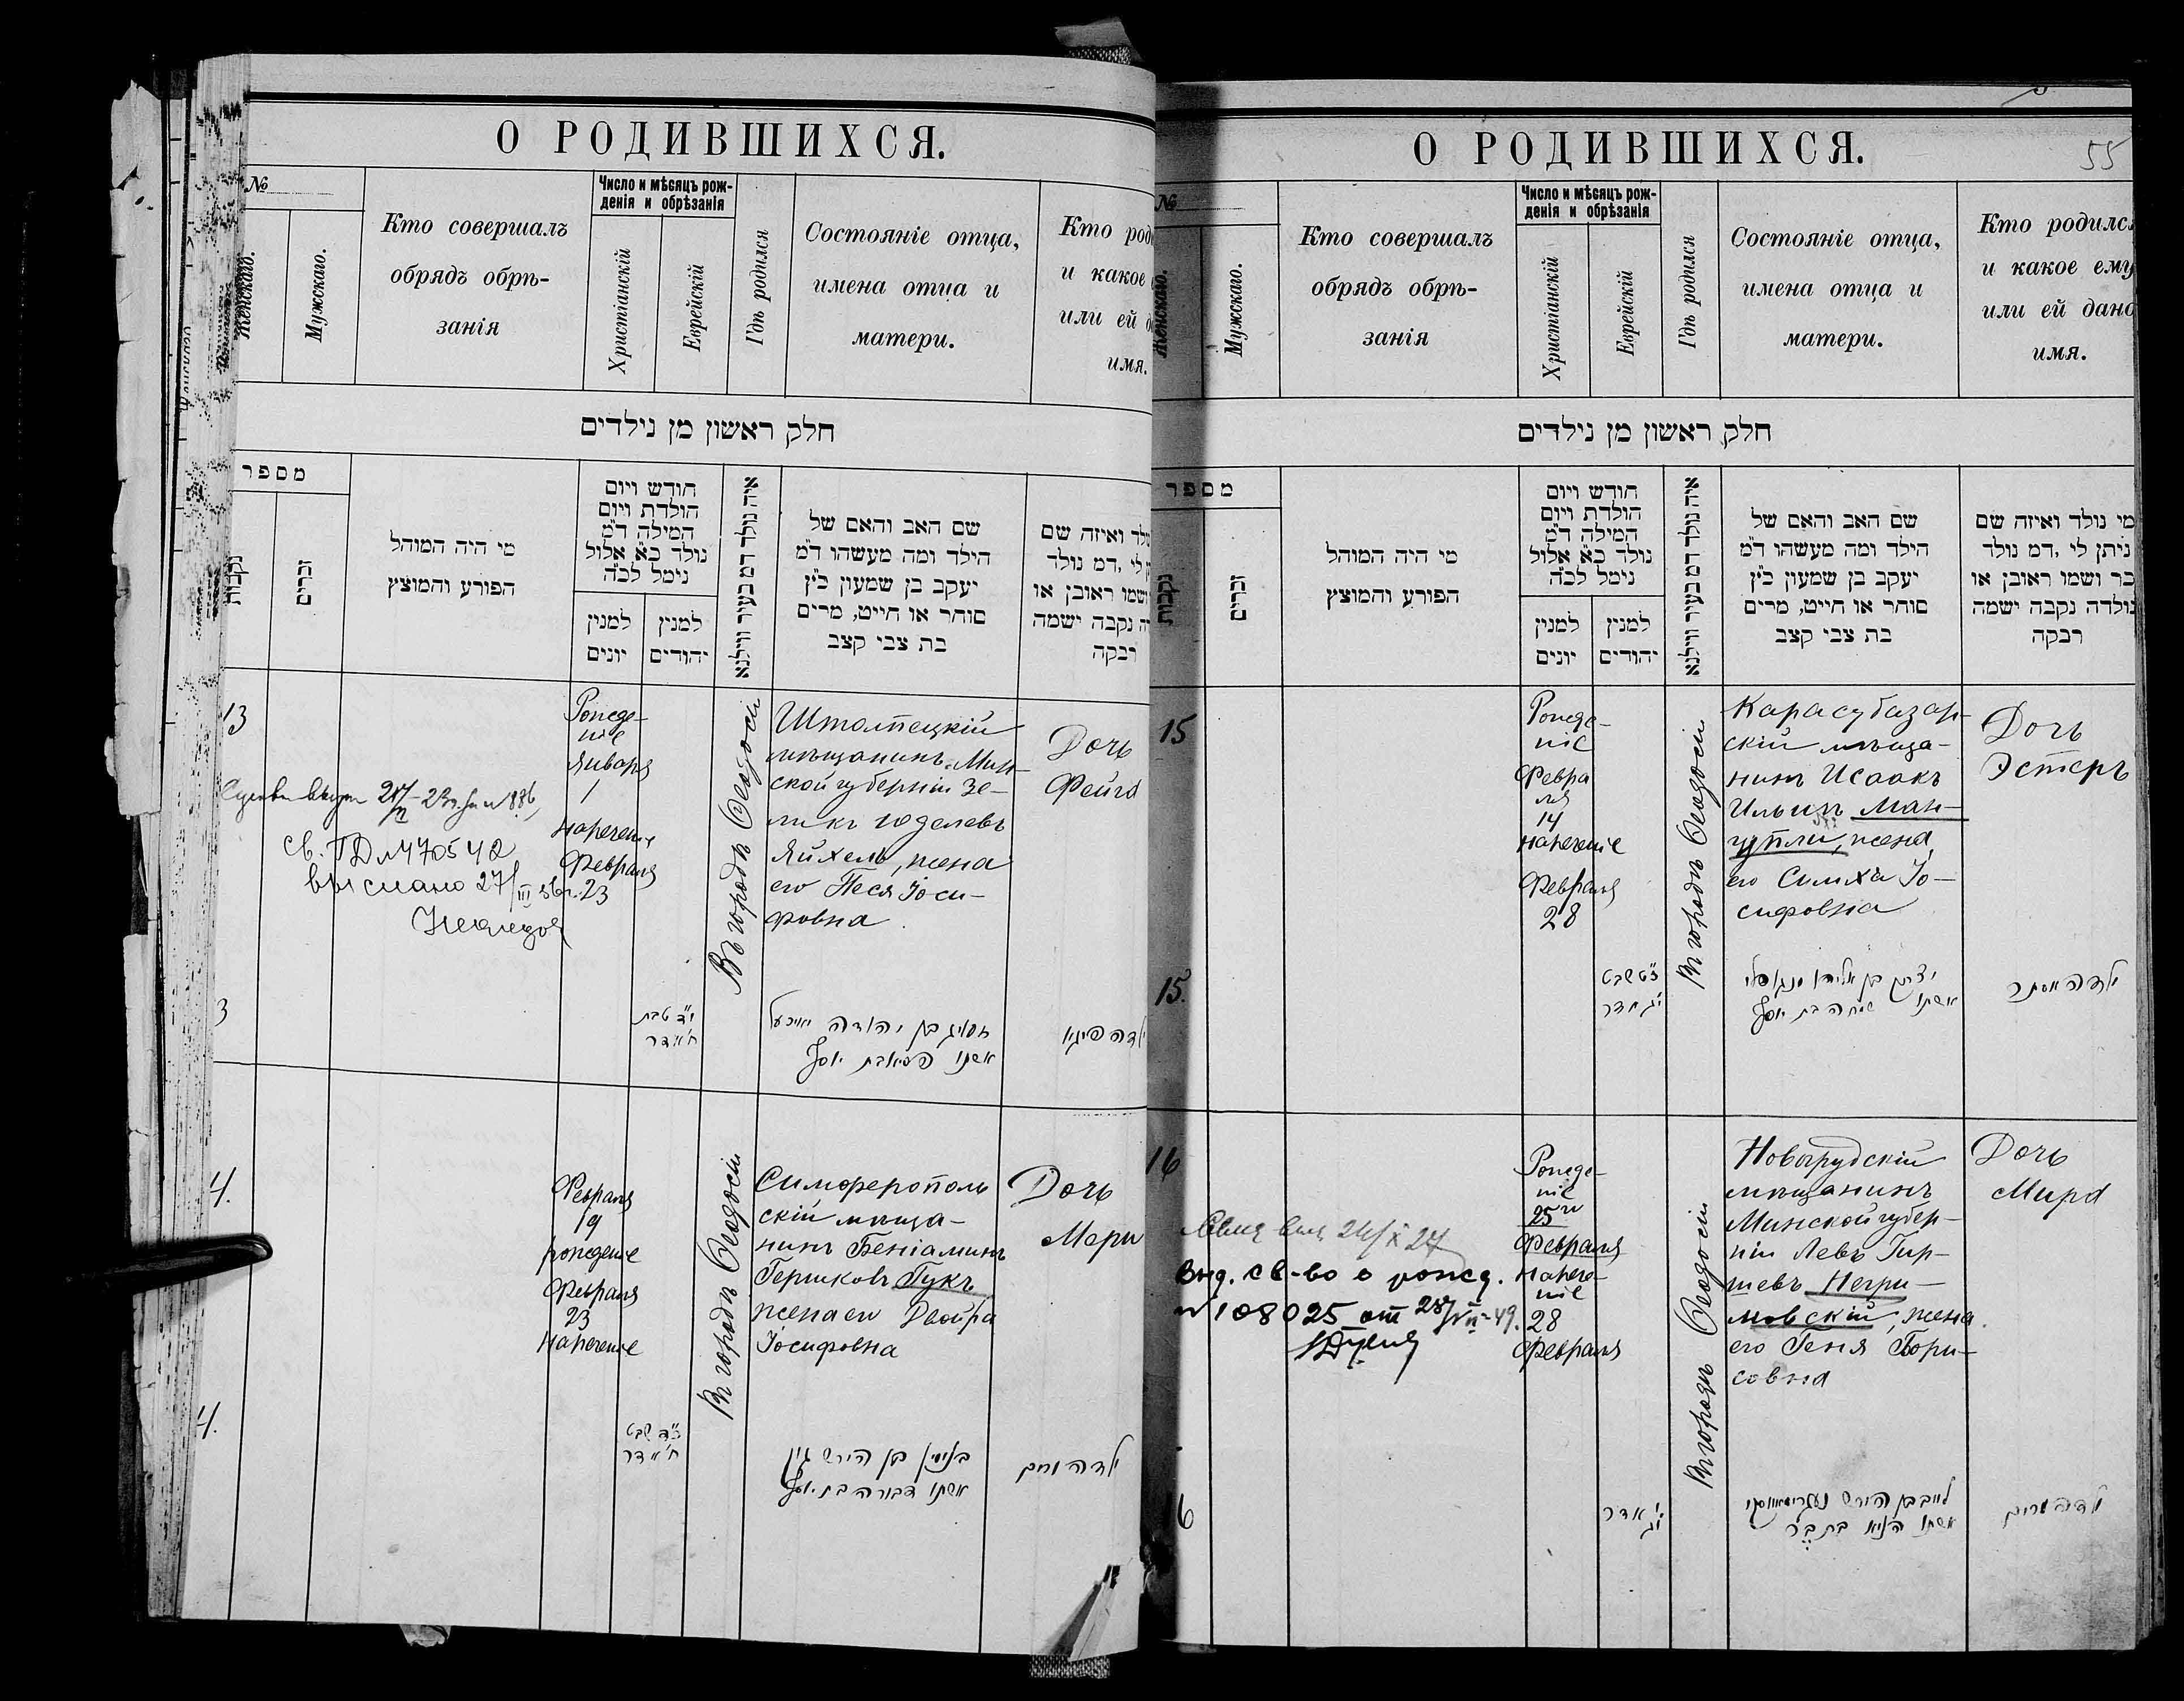 О РОДИВШИХСЯ.
№
Женскаго.
Мужскаго.
Кто совершалъ
обрядъ обрѣ-
занія
Число и мѣсяцъ рож-
денія и обрѣзанія
Христіанскій
Еврейскій
Гдѣ родился
Состояніе отца,
имена отца и
матери.
Кто род
и какое
или ей д
имя.
חלק ראשון מן נילדים
מספר
נקבות
זכרים
מי היה המוהל
הפורע והמוצץ
חודש ויום
הולדת ויום
המילה ד״מ
נולד כ״א אלול
נימל לכ״ה
למנין
יונים
למנין
יהודים
איה נולד דמ בעיר ווילנא
שם האב והאם של
הילד ומה מעשהו ד״מ
יעקב בן שמעון כ״ץ
סוחר או חייט, מרים
בת צבי קצב
ולד ואיזה שם
לי ,דמ נולד
ושמו ראובן או
ה נקבה ישמה
רבקה
13
св. ГД № 470542
выслано 27/III 56г.
Рожде-
ніе
Января
1
Нареченіе
Февраля
23
Въ городѣ Ѳеодосіи
Штолпецкій
мѣщанинъ Мин-
ской губерніи Зе-
ликъ Юделевъ
Яйхель, жена
его Песя Іоси-
фовна
Дочь
Фейга
3
י״ד טבת
ח׳ אדר
בן יהודה
אשתו פסיא בת יוסף
ילדה פיגא
4.
Февраля
19
рожденіе
Февраля
23
Нареченіе
Въ городѣ Ѳеодосіи
Симферополь
скій мѣща-
нинъ Беніаминъ
Гершковъ Гукъ
жена его Двойра
Іосифовна
Дочь
Мари
4.
ח׳ אדר
בנימין בן הירש
אשתו דבורה בת יוסף
ילדה מרים
О РОДИВШИХСЯ.
55
№
Женскаго.
Мужскаго.
Кто совершалъ
обрядъ обрѣ-
занія
Число и мѣсяцъ рож-
денія и обрѣзанія
Христіанскій
Еврейскій
Гдѣ родился
Состояніе отца,
имена отца и
матери.
Кто родился
и какое ему
или ей дано
имя.
חלק ראשון מן נילדים
מספר
נקבות
זכרים
מי היה המוהל
הפורע והמוצץ
חודש ויום
הולדת ויום
המילה ד״מ
נולד כ״א אלול
נימל לכ״ה
למנין
יונים
למנין
יהודים
איה נולד דמ בעיר ווילנא
שם האב והאם של
הילד ומה מעשהו ד״מ
יעקב בן שמעון כ״ץ
סוחר או חייט, מרים
בת צבי קצב
מי נולד ואיזה שם
ניתן לי ,דמ נולד
כר ושמו ראובן או
נולדה נקבה ישמה
רבקה
15
Рожде-
ніе
Февра
ля
14
Нареченіе
Февраля
28
Въ городѣ Ѳеодосіи
Карасубазар-
скій мѣща-
нинъ Исаакъ
Ильинъ Ман-
гупли, жена
его Симха Іо-
сифовна
Дочь
Эстеръ
15.
שבט
י״ג אדר
יצחק בן אליהו מנגופלי
אשתו שמחה בת יוסף
ילדה אסתר
16
Выд. св-во о рожд.
№ 108025 от 28/VII-49.
Рожде-
ніе
25го
Февраля
Нарече-
ніе
28
Февраля
Въ городѣ Ѳеодосіи
Новогрудскій
мѣщанинъ
Минской губер-
ніи Левъ Гир-
шевъ Негри-
мовскій, жена
его Геня Бори-
совна
Дочь
Мира
16
י׳ אדר
י״ג
לייב בן הירש
אשתו העניא בת
ילדה מרים